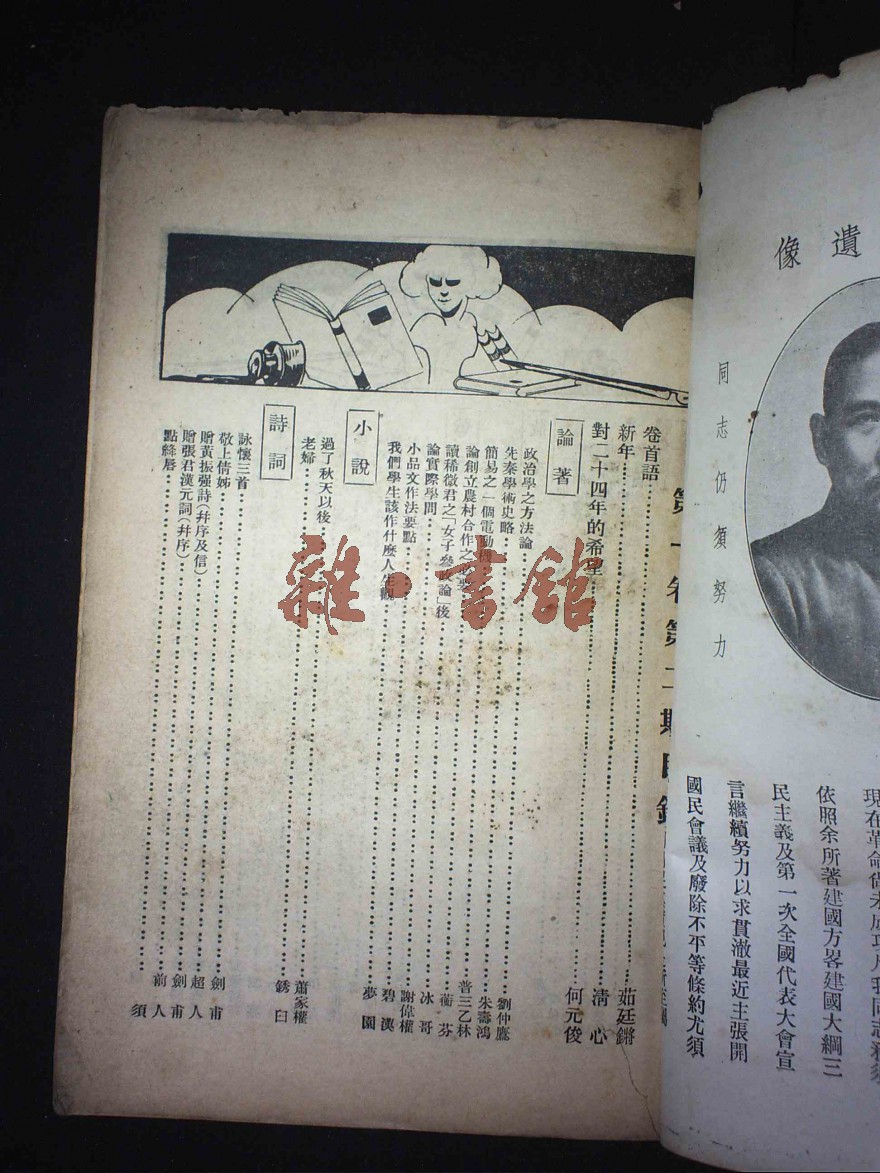 遺像
同志仍須努力
現在革命尚未成功凡我同志務須
依照余所著建國方畧建國大綱三
民主義及第一次全國代表大會宣
言繼續努力以求貫澈最近主張開
國民會議及廢除不平等條約尤須
第一卷第二期目錄
卷首語 茹廷鏘
新年 清心
對二十四年的希望 何元俊
論著
政治學之方法論 劉仲鷹
先秦學術史略 朱壽鴻
簡易之一個電動機 普三乙林
論創立農村合作之必要 蘅芬
讀稀微君之「女子參政論」後 冰哥
論實際學問 謝偉權
小品文作法要點 碧漢
我們學生該作什麼人生觀 夢園
小說
過了秋天以後 蕭家權
老婦 銹白
詩詞
詠懷三首 劍甫
敬上倩姊 超人
贈黃振強詩(幷序及信) 劍甫
贈張君漢元詞(幷序) 前人
點絳唇 須
雜·書館